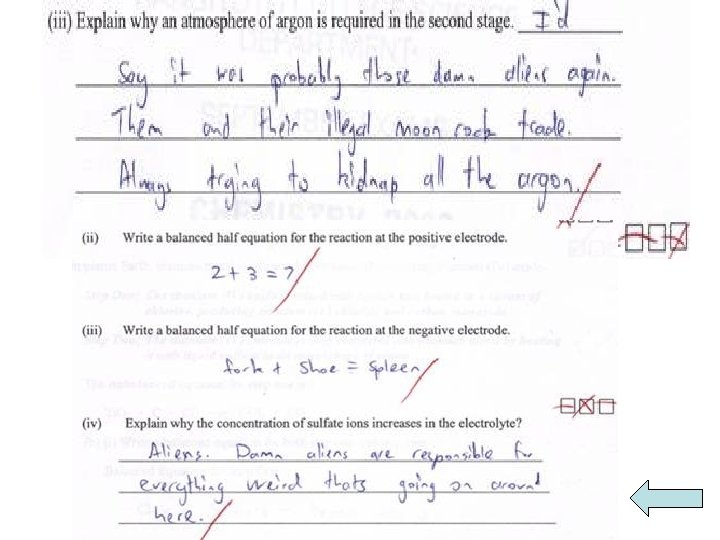 (iii) Explain why an atmosphere of argon is required in the second stage. I'd
Say it was probably those damn aliens again.
Them and their illegal moon rock trade.
Always trying to kidnap all the argon.
(ii) Write a balanced half equation for the reaction at the positive electrode.
2 + 3 = 7
(iii) Write a balanced half equation for the reaction at the negative electrode.
fork + shoe = spleen
(iv) Explain why the concentration of sulfate ions increases in the electrolyte?
Aliens. Damn aliens are responsible for
everything weird thats going on around
here.